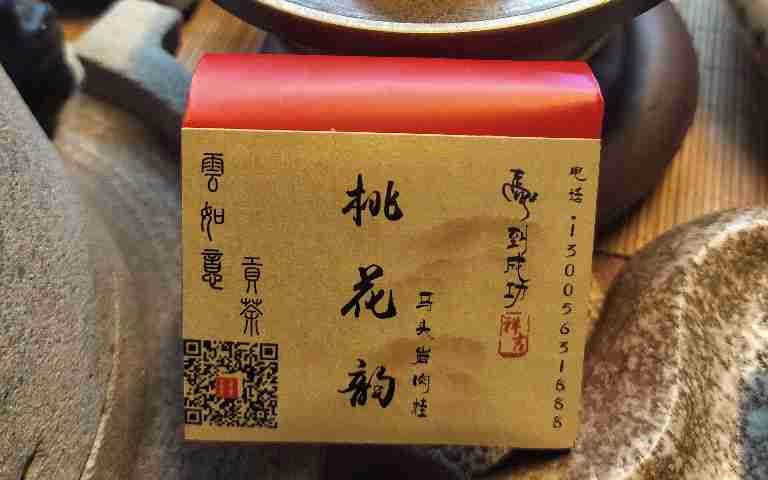 电话 13005631888
馬到成功
祥吉
桃花韵
马头岩肉桂
雲如意
贡茶